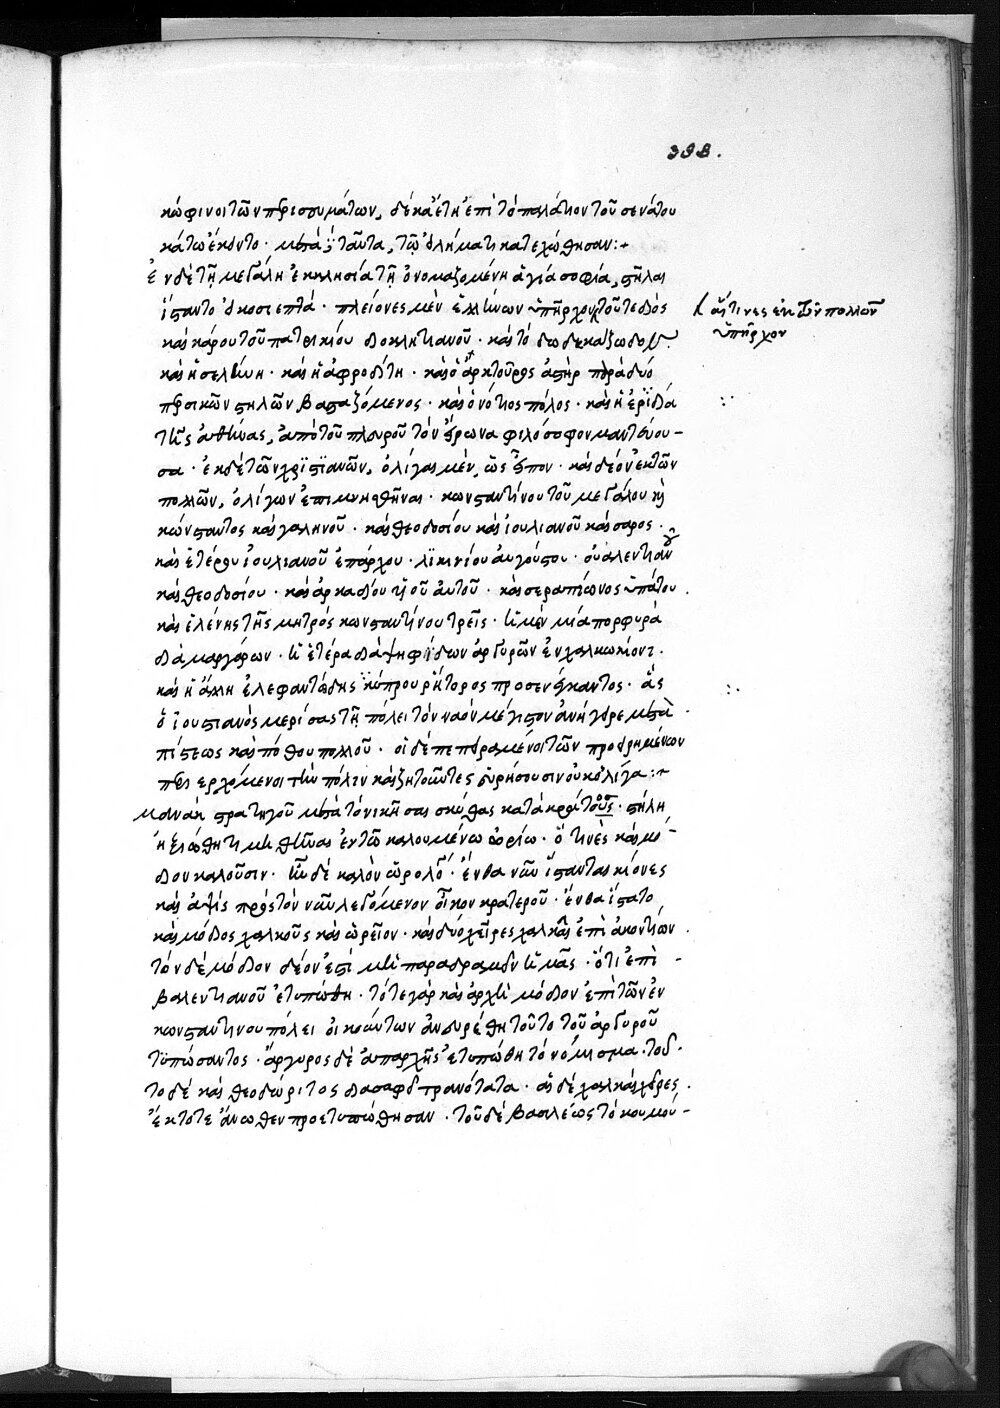 332.
κώφινοι τῶν πρισουμάτων, δέκα ἔτη ἐπὶ τὸ παλάτιον τοῦ σενάτου
κάτω ἔκειντο · μετὰ ταῦτα, τῷ βλήματι κατεχώθησαν :+
Ἐν δὲ τῇ μεγάλῃ ἐκκλησία τῇ ὀνομαζομένῃ ἁγία σοφία, στῆλαι
ἵσταντο · πλείονες μὲν ἑλλήνων ὑπῆρχον τοῦ τε διὸς
αἵτινες ἐκ τῶν πολλῶν
ὑπῆρχον
καὶ κάρου τοῦ πατρικίου διοκλητιανοῦ · καὶ τὸ δωδεκάζωδον
καὶ ἡ σελήνη · καὶ ἡ ἀφροδίτη · καὶ ὁ ἀρκτοῦρος ἀστὴρ παρὰ δύο
περσικῶν στηλῶν βασταζόμενος · καὶ ὁ νότιος πόλος · καὶ ἡ ἐρϊδα
τῆς ἀθήνας, ἀπὸ τοῦ πλευροῦ τὸν ἥρωνα φιλόσοφον μαντεύου-
σα · ἐκ δὲ τῶν χριστιανῶν, ὀλίγας μὲν, ὡς εἶπον · καὶ δέον ἐκ τῶν
πολλῶν, ὀλίγων ἐπιμνησθῆναι · κωνσταντίνου τοῦ μεγάλου καὶ
κώνσταντος καὶ γαληνοῦ · καὶ θεοδοσίου καὶ ἰουλιανοῦ καίσαρος ·
καὶ ἑτέρου ἰουλιανοῦ ἐπάρχου · λϊκινίου αὐγούστου · οὐαλεντιανοῦ
καὶ θεοδοσίου · καὶ ἀρκαδίου υἱοῦ αὐτοῦ · καὶ σεραπίωνος ὑπάτου ·
καὶ ἑλένης τῆς μητρὸς κωνσταντίνου τρεῖς · ἡ μὲν μία πορφυρᾶ
διὰ μαργάρων · ἡ ἑτέρα διὰ ψηφίδων ἀργυρῶν ἐν χαλκῷ κίονι ·
καὶ ἡ ἄλλη ἐλεφαντώδης κύπρου ῥήτορος προσενέγκαντος · ἃς
ὁ ἰουστιανὸς μερίσας τῇ πόλει τὸν ναὸν μέγιστον ἀνήγειρε μετὰ
πίστεως καὶ πόθου πολλοῦ · οἱ δὲ πεπειραμένοι τῶν προειρημένων
περιερχόμενοι τὴν πόλιν καὶ ζητοῦντες εὑρήσουσιν οὐκ ὀλίγα :+
Μαναὴ στρατηγοῦ μετὰ τὸ νικῆσαι σκύθας κατὰ κράτος · στήλη
ἠξιώθη τιμηθῆναι ἐν τῷ καλουμένῳ ὡρίω · ὅ τινες καὶ μό-
διον καλοῦσιν · ἦν δὲ καλὸν ὡρολόγιον · ἔνθα νῦν ἵσταντας κίονες
καὶ ἁψὶς πρὸς τὸν νῦν λεγόμενον οἶκον κρατεροῦ · ἔνθα ἵστατο
καὶ μόδιος χαλκοῦς καὶ ὡρεῖον · καὶ δύο χεῖρες χαλκαῖ ἐπὶ ἀκοντίων ·
τὸν δὲ μόδιον δέον ἐστὶ μὴ παραδραμεῖν ἡμᾶς · ὅτι ἐπὶ -
βαλεντιανοῦ ἐτυπώθη · τότε γὰρ καὶ ἀρχὴ μοδίου ἐπὶ τῶν ἐν
κωνσταντίνου πόλει οἰκούντων ἀνευρέθη τοῦτο τοῦ ἀργυροῦ
τυπώσαντος · ἄργυρος δὲ ἀπαρχῆς ἐτυπώθη τὸ νόμισμα · τοῦ-
το δὲ καὶ θεοδώριτος διασαφεῖ τρανότατα · αἱ δὲ χαλκαῖ χεῖρες ·
ἔκτοτε ἄνωθεν προετυπώθησαν · τοῦ δὲ βασιλέως τὸ κουμού-